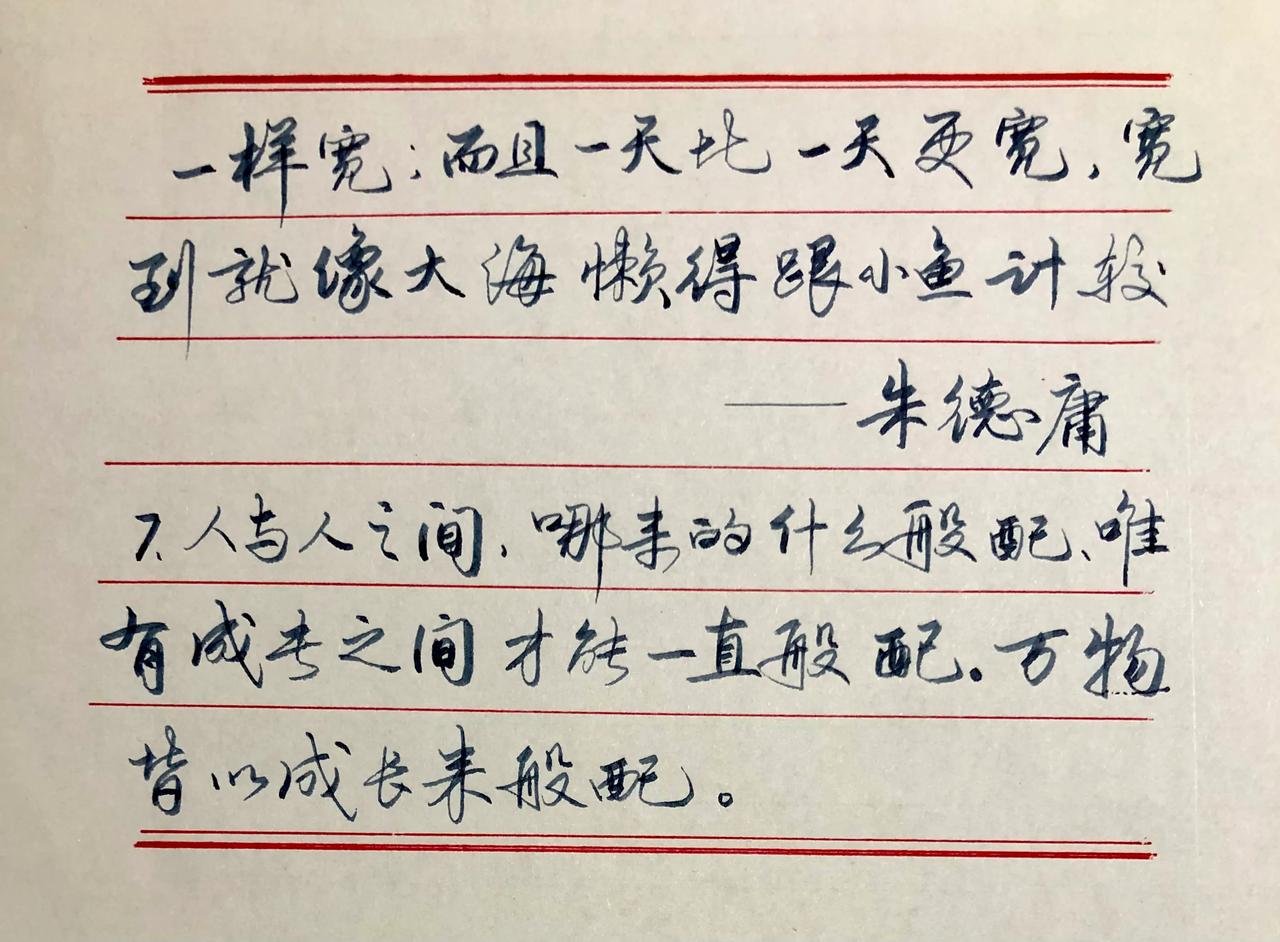 一样宽；而且一天比一天更宽，宽
到就像大海懒得跟小鱼计较
——朱德庸
7.人与人之间，哪来的什么般配、唯
有成长之间才能一直般配。万物
皆以成长来般配。